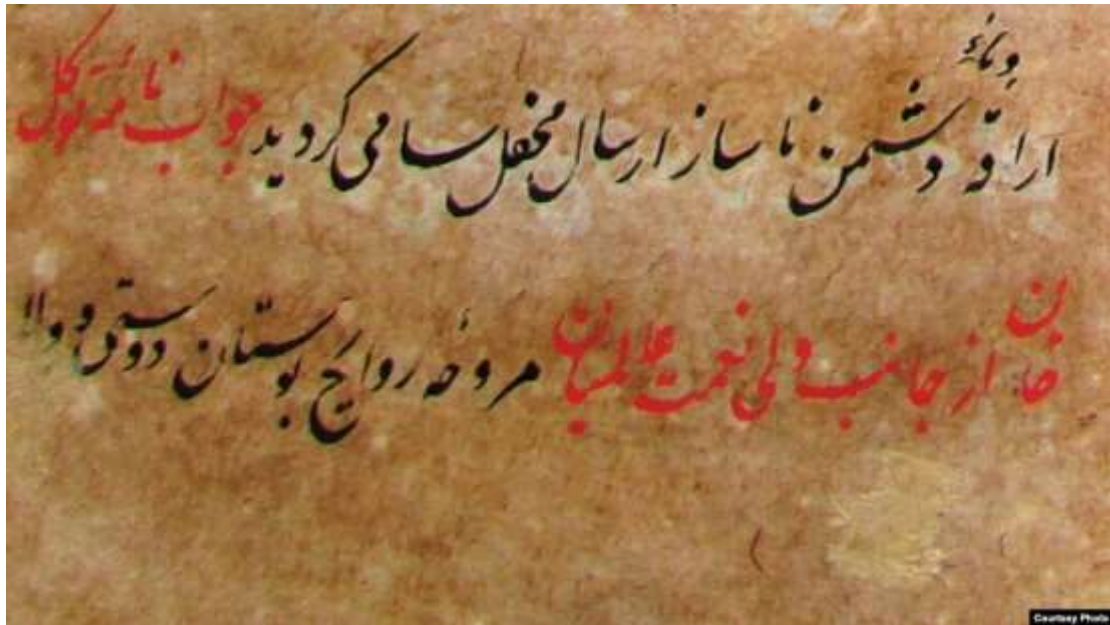 دماء
اراقهٔ دشمن ناساز ارسال محفل سامی گردید جواب نامهٔ توکل
خان از جانب ولی نعمت عالمیان مروحهٔ روایح بوستان دوستی و ولا
Courtesy Photo